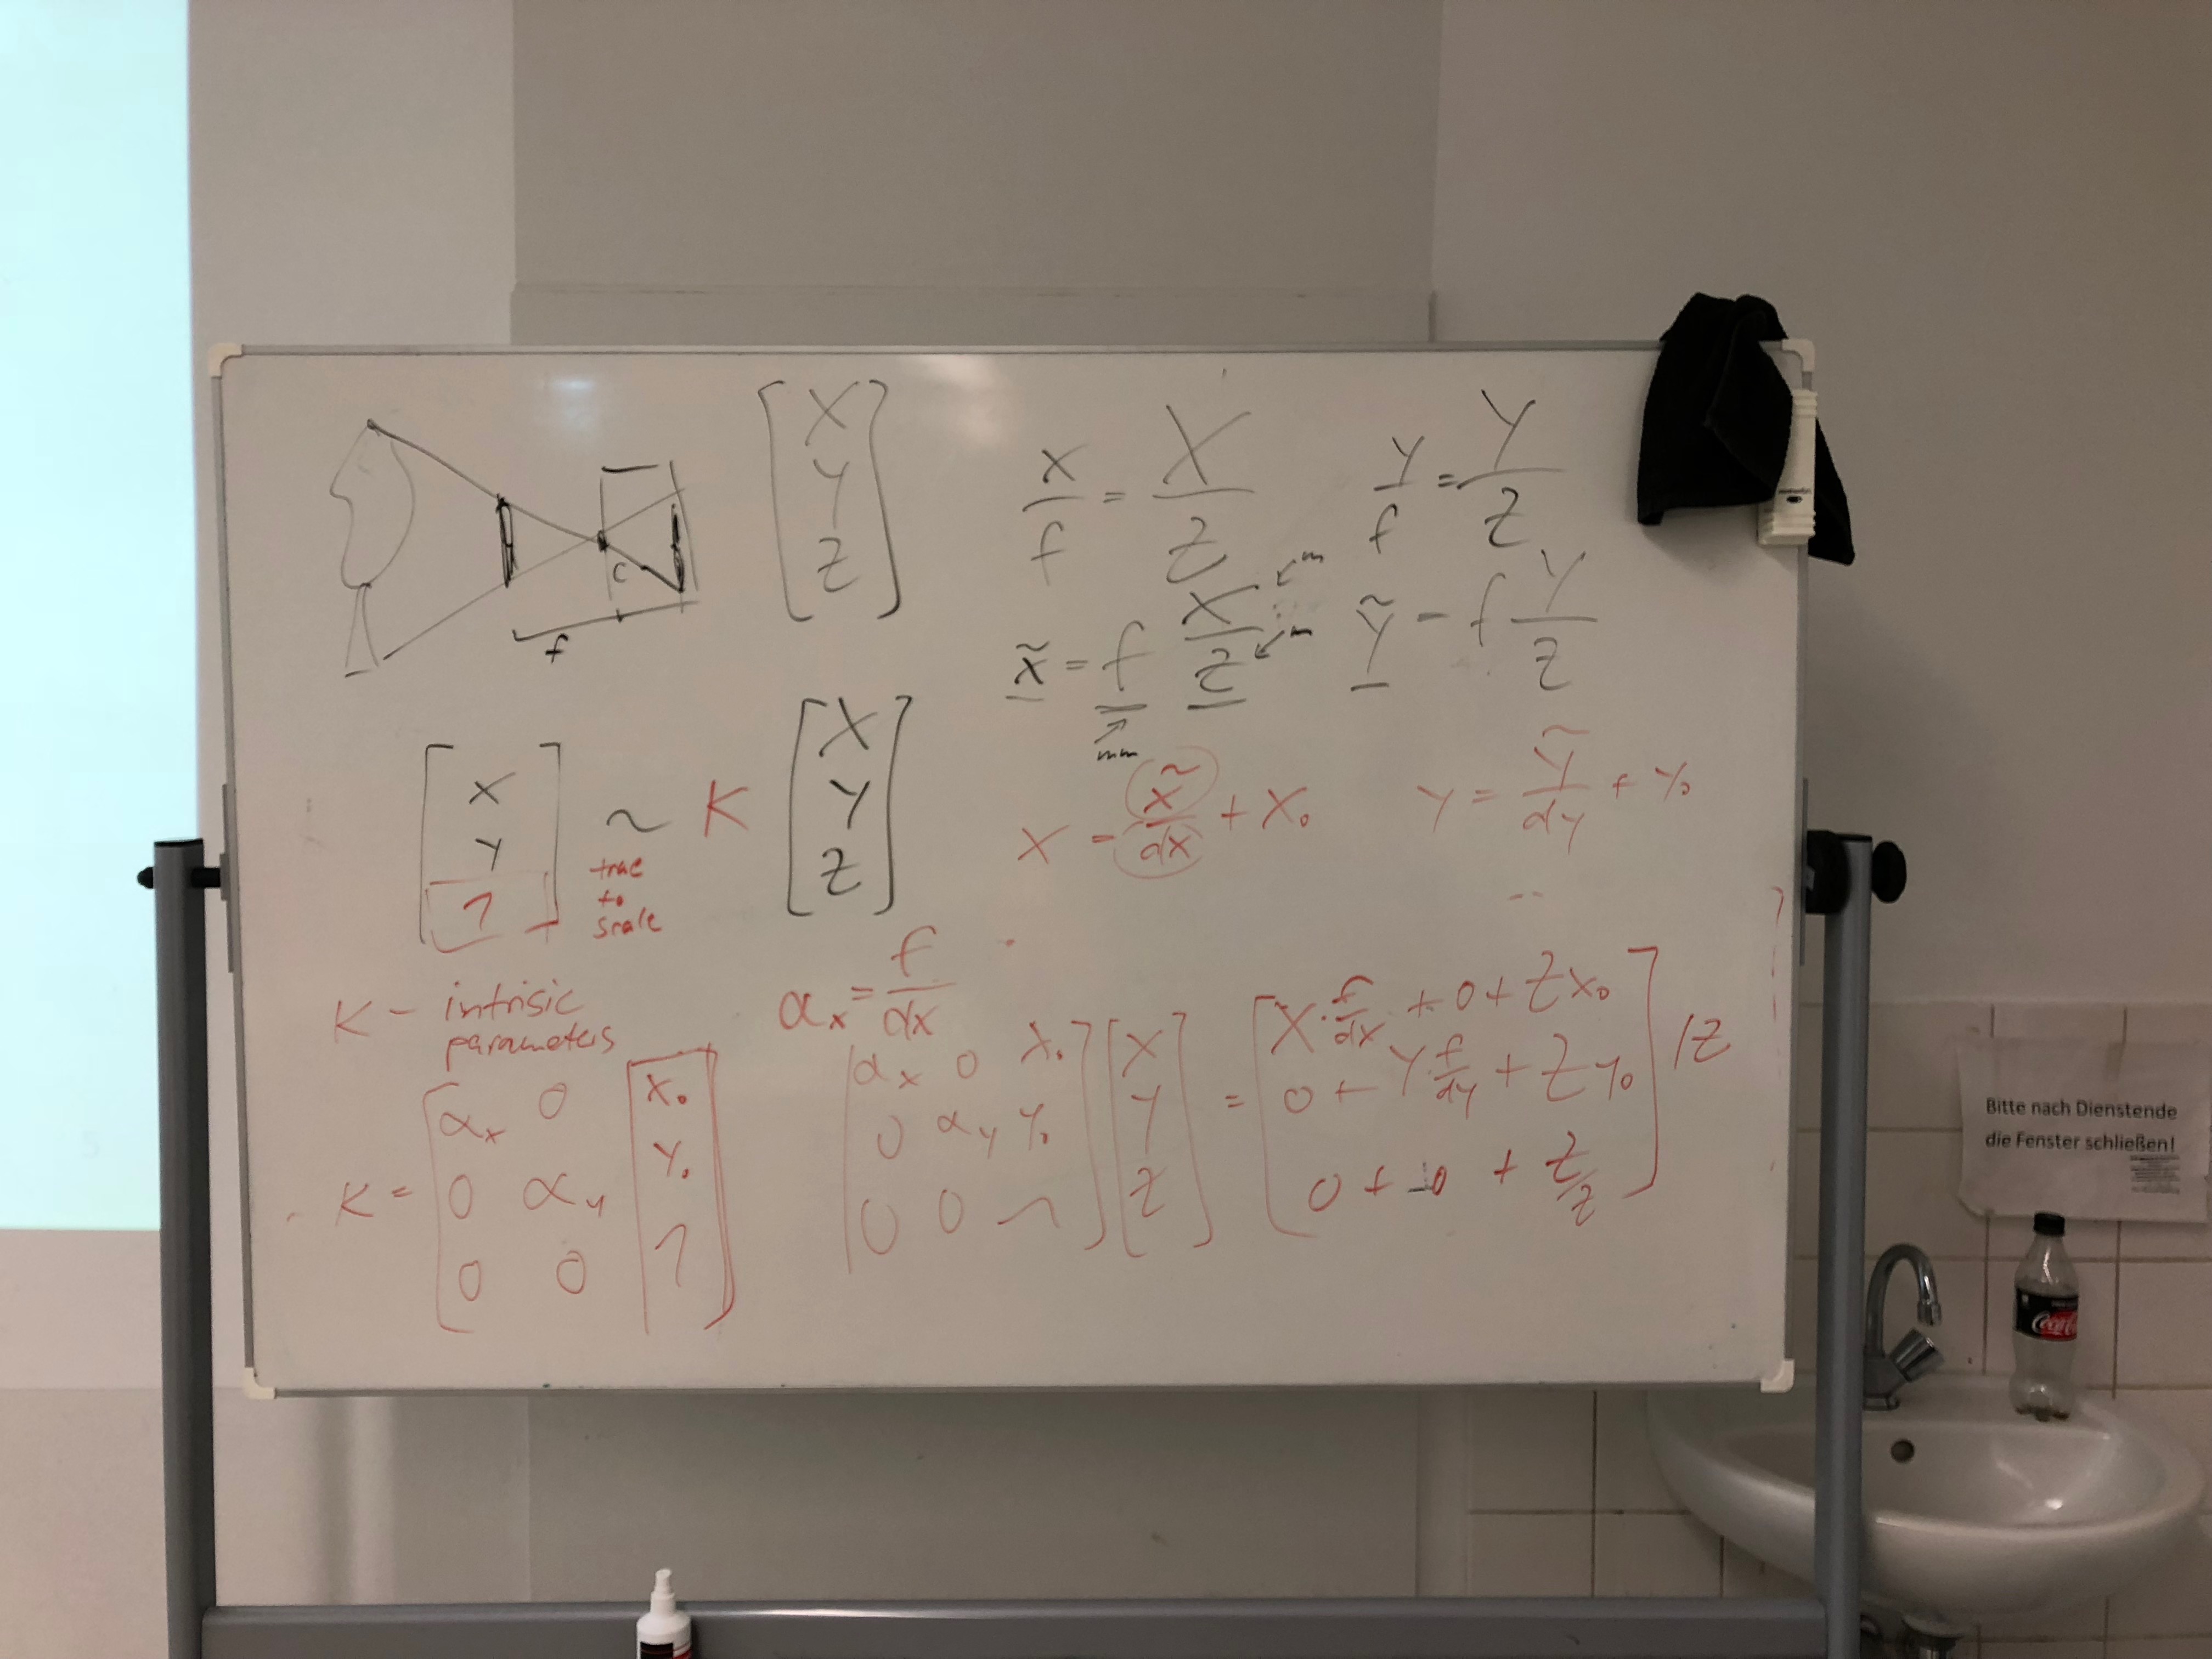 [X Y Z]
x/f = X/Z
y/f = Y/Z
c
f
x̃ = f X/Z
m
m
mm
ỹ = f Y/Z
[x y 1] ~ K [X Y Z]
true
to
scale
x = x̃/dx + x₀
y = ỹ/dy + y₀
K - intrisic
parameters
αx = f/dx
K = [αx 0 x₀
0 αy y₀
0 0 1]
[αx 0 x₀
0 αy y₀
0 0 1] [X Y Z] = [X·f/dx + 0 + Zx₀
0 + Y f/dy + Zy₀
0 + 0 + Z/Z] /Z
Bitte nach Dienstende
die Fenster schließen!